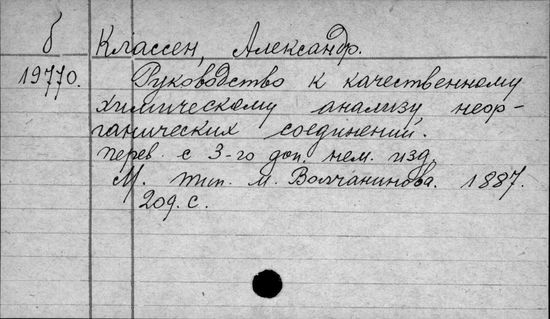 б Классен, Александр.
19770. Руководство к качественному
химическому анализу неор-
ганических соединений.
перев. с 3-го доп. нем. изд.
М. тип. М. Волчанинова. 1887.
209. с.